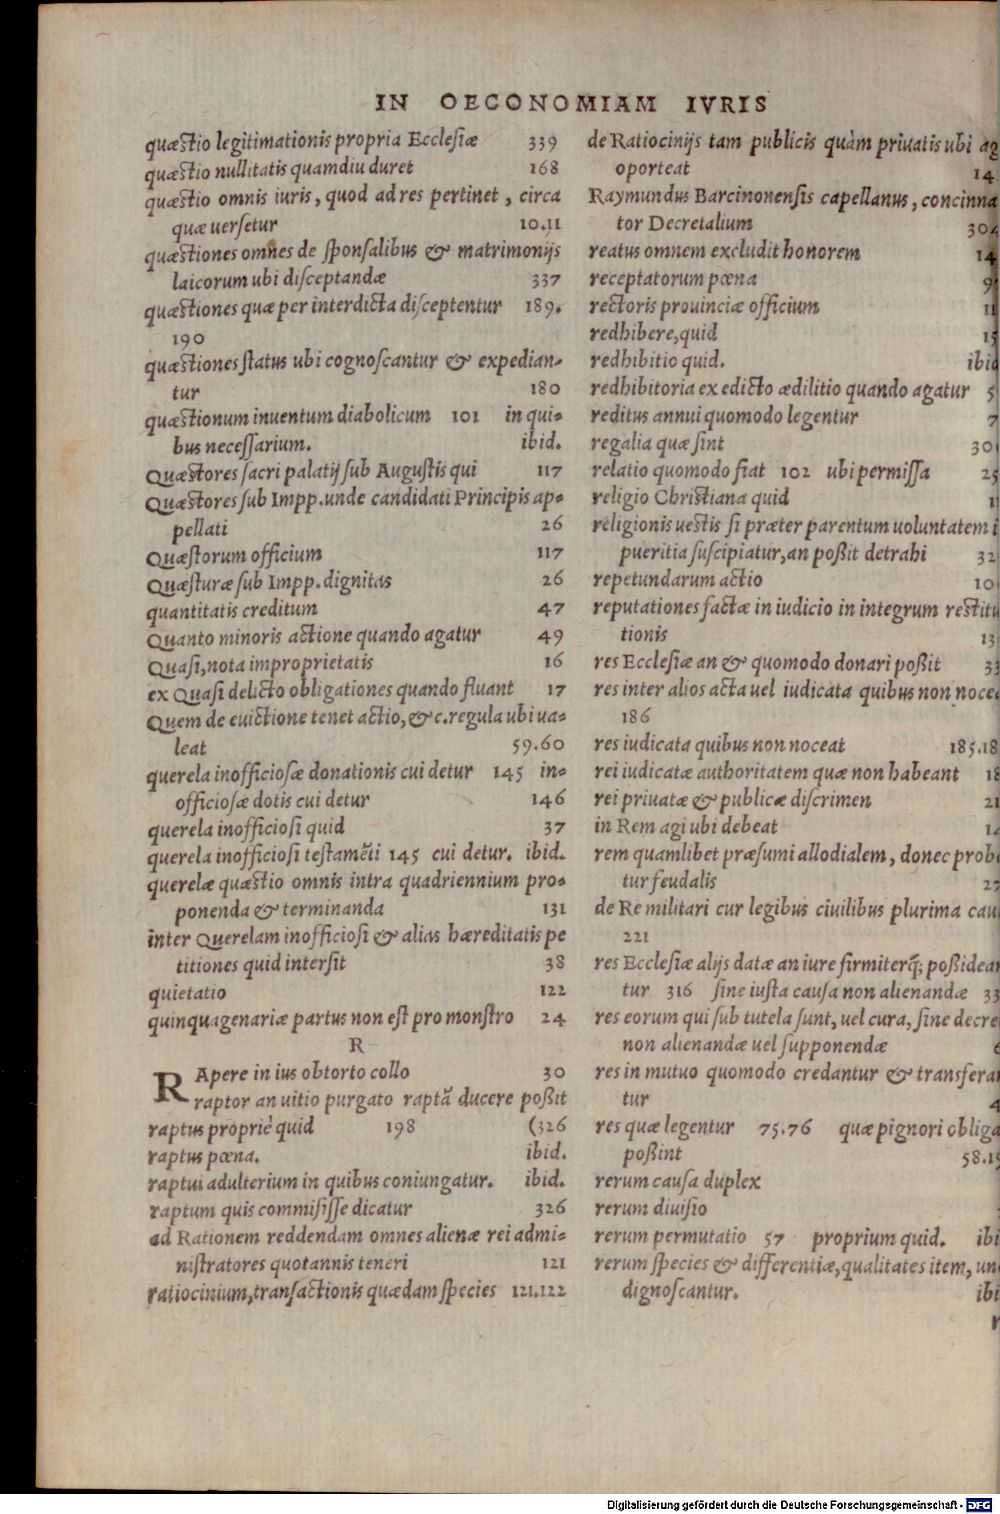 IN OECONOMIAM IVRIS
quæstio legitimationis propria Ecclesiæ 339
quæstio nullitatis quamdiu duret 168
quæstio omnis iuris, quod ad res pertinet, circa
quæ uersetur 10.11
quæstiones omnes de sponsalibus & matrimonijs
laicorum ubi disceptandæ 337
quæstiones quæ per interdicta disceptentur 189.
190
quæstiones status ubi cognoscantur & expedian-
tur 180
quæstionum inuentum diabolicum 101 in qui-
bus necessarium. ibid.
Quæstores sacri palatij sub Augustis qui 117
Quæstores sub Impp. unde candidati Principis ap-
pellati 26
Quæstorum officium 117
Quæsturæ sub Impp. dignitas 26
quantitatis creditum 47
Quanto minoris actione quando agatur 49
Quasi, nota improprietatis 16
ex Quasi delicto obligationes quando fluant 17
Quem de euictione tenet actio, &c. regula ubi ua-
leat 59.60
querela inofficiosæ donationis cui detur 145 in-
officiosæ dotis cui detur 146
querela inofficiosi quid 37
querela inofficiosi testamēti 145 cui detur. ibid.
querelæ quæstio omnis intra quadriennium pro-
ponenda & terminanda 131
inter Querelam inofficiosi & alias hæreditatis pe
titiones quid intersit 38
quietatio 122
quinquagenariæ partus non est pro monstro 24
R
RApere in ius obtorto collo 30
raptor an uitio purgato raptā ducere poßit
raptus propriè quid 198 (326
raptus pœna. ibid.
raptui adulterium in quibus coniungatur. ibid.
raptum quis commisisse dicatur 326
ad Rationem reddendam omnes alienæ rei admi-
nistratores quotannis teneri 121
ratiocinium, transactionis quædam species 121.122
de Ratiocinijs tam publicis quàm priuatis ubi ag
oporteat 14
Raymundus Barcinonensis capellanus, concinna
tor Decretalium 304
reatus omnem excludit honorem 14
receptatorum pœna 9
rectoris prouinciæ officium 11
redhibere, quid 15
redhibitio quid. ibid
redhibitoria ex edicto ædilitio quando agatur 5
reditus annui quomodo legentur 7
regalia quæ sint 30
relatio quomodo fiat 102 ubi permissa 25
religio Christiana quid 1
religionis uestis si præter parentum uoluntatem i
pueritia suscipiatur, an poßit detrahi 32
repetundarum actio 10
reputationes factæ in iudicio in integrum restitu
tionis 13
res Ecclesiæ an & quomodo donari poßit 33
res inter alios acta uel iudicata quibus non nocea
186
res iudicata quibus non noceat 185.18
rei iudicatæ authoritatem quæ non habeant 18
rei priuatæ & publicæ discrimen 21
in Rem agi ubi debeat 14
rem quamlibet præsumi allodialem, donec probe
tur feudalis 27
de Re militari cur legibus ciuilibus plurima cau
221
res Ecclesiæ alijs datæ an iure firmiterq́; poßidean
tur 316 sine iusta causa non alienandæ 33
res eorum qui sub tutela sunt, uel cura, sine decre
non alienandæ uel supponendæ 6
res in mutuo quomodo credantur & transferan
tur 4
res quæ legentur 75.76 quæ pignori obliga
poßint 58.15
rerum causa duplex
rerum diuisio
rerum permutatio 57 proprium quid. ibi
rerum species & differentiæ, qualitates item, un
dignoscantur. ibi
r
Digitalisierung gefördert durch die Deutsche Forschungsgemeinschaft - DFG